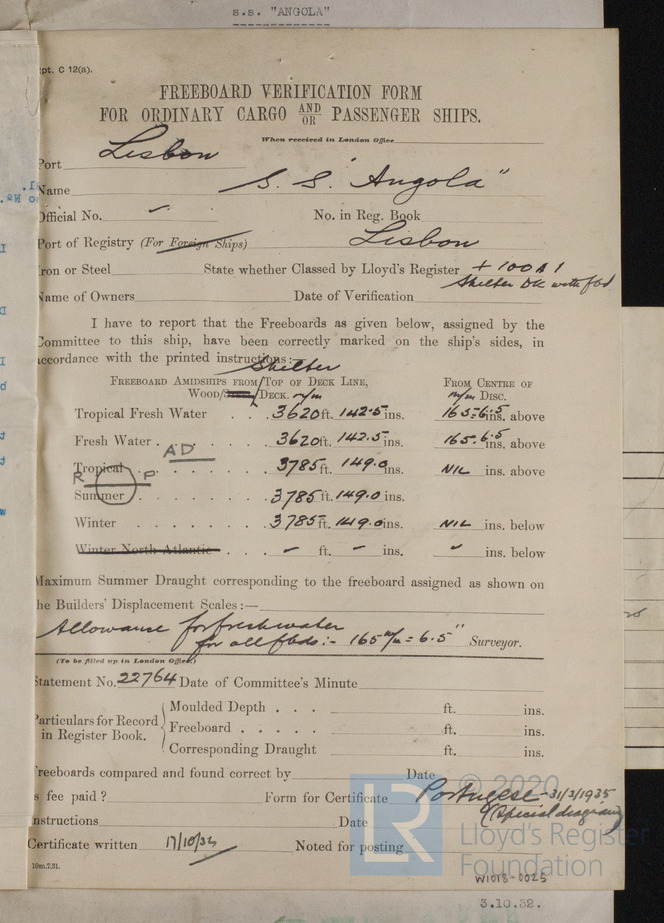 s.s. "ANGOLA"
pt. C 12(a).
FREEBOARD VERIFICATION FORM
FOR ORDINARY CARGO AND/OR PASSENGER SHIPS.
When received in London Office
Port Lisbon
Name S. S. "Angola"
Official No. No. in Reg. Book
Port of Registry (For Foreign Ships) Lisbon
Iron or Steel State whether Classed by Lloyd's Register + 100 A 1
Name of Owners Date of Verification Shelter Dk with fbd
I have to report that the Freeboards as given below, assigned by the
Committee to this ship, have been correctly marked on the ship's sides, in
accordance with the printed instructions:—
Shelter
FREEBOARD AMIDSHIPS FROM TOP OF DECK LINE, FROM CENTRE OF
WOOD/STEEL DECK. m/m m/m DISC.
Tropical Fresh Water . . 3620 ft. 142.5 ins. 165=6.5 ins. above
Fresh Water . . . . . . 3620 ft. 142.5 ins. 165.6.5 ins. above
AD
Tropical . . . . . . 3785 ft. 149.0 ins. NIL ins. above
R P
Summer . . . . . . 3785 ft. 149.0 ins.
Winter . . . . . . . 3785 ft. 149.0 ins. NIL ins. below
Winter North Atlantic . . . - ft. - ins. - ins. below
Maximum Summer Draught corresponding to the freeboard assigned as shown on
the Builders' Displacement Scales :—
Allowance for freshwater
for all fbds :- 165 m/m = 6.5" Surveyor.
(To be filled up in London Office)
Statement No. 22764 Date of Committee's Minute
Particulars for Record in Register Book.
Moulded Depth . . . ft. ins.
Freeboard . . . . . ft. ins.
Corresponding Draught ft. ins.
Freeboards compared and found correct by Date
Is fee paid ? Form for Certificate Portugese - 31/3/1935
(Special diagram)
Instructions Date
Certificate written 17/10/32 Noted for posting
10m,7,31.
© 2020
LR
Lloyd's Register
Foundation
W1013-0025
3.10.32.